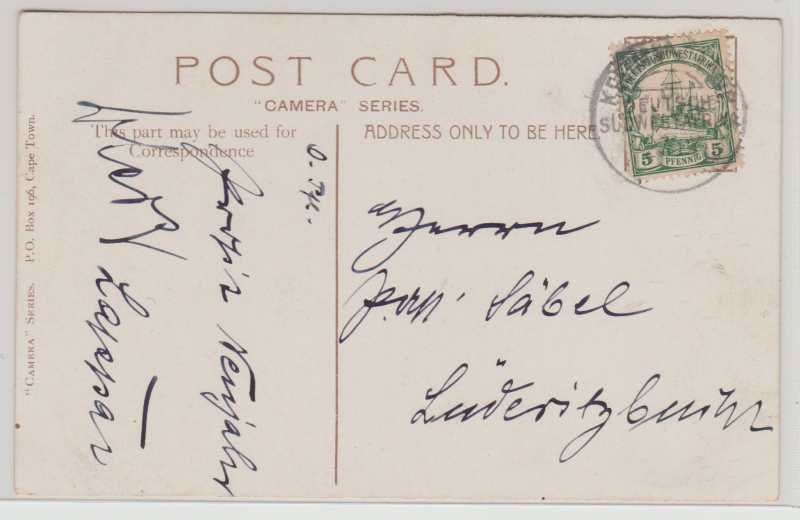 POST CARD.
"CAMERA" SERIES.
This part may be used for
Correspondence
ADDRESS ONLY TO BE HERE
"CAMERA" SERIES. P.O. Box 196, Cape Town.
DEUTSCH-SÜDWESTAFRIKA
5 PFENNIG 5
DEUTSCHE
SÜDWESTAFRIKA
Prosit Neujahr
Herrn
Säbel
Lüderitzbucht